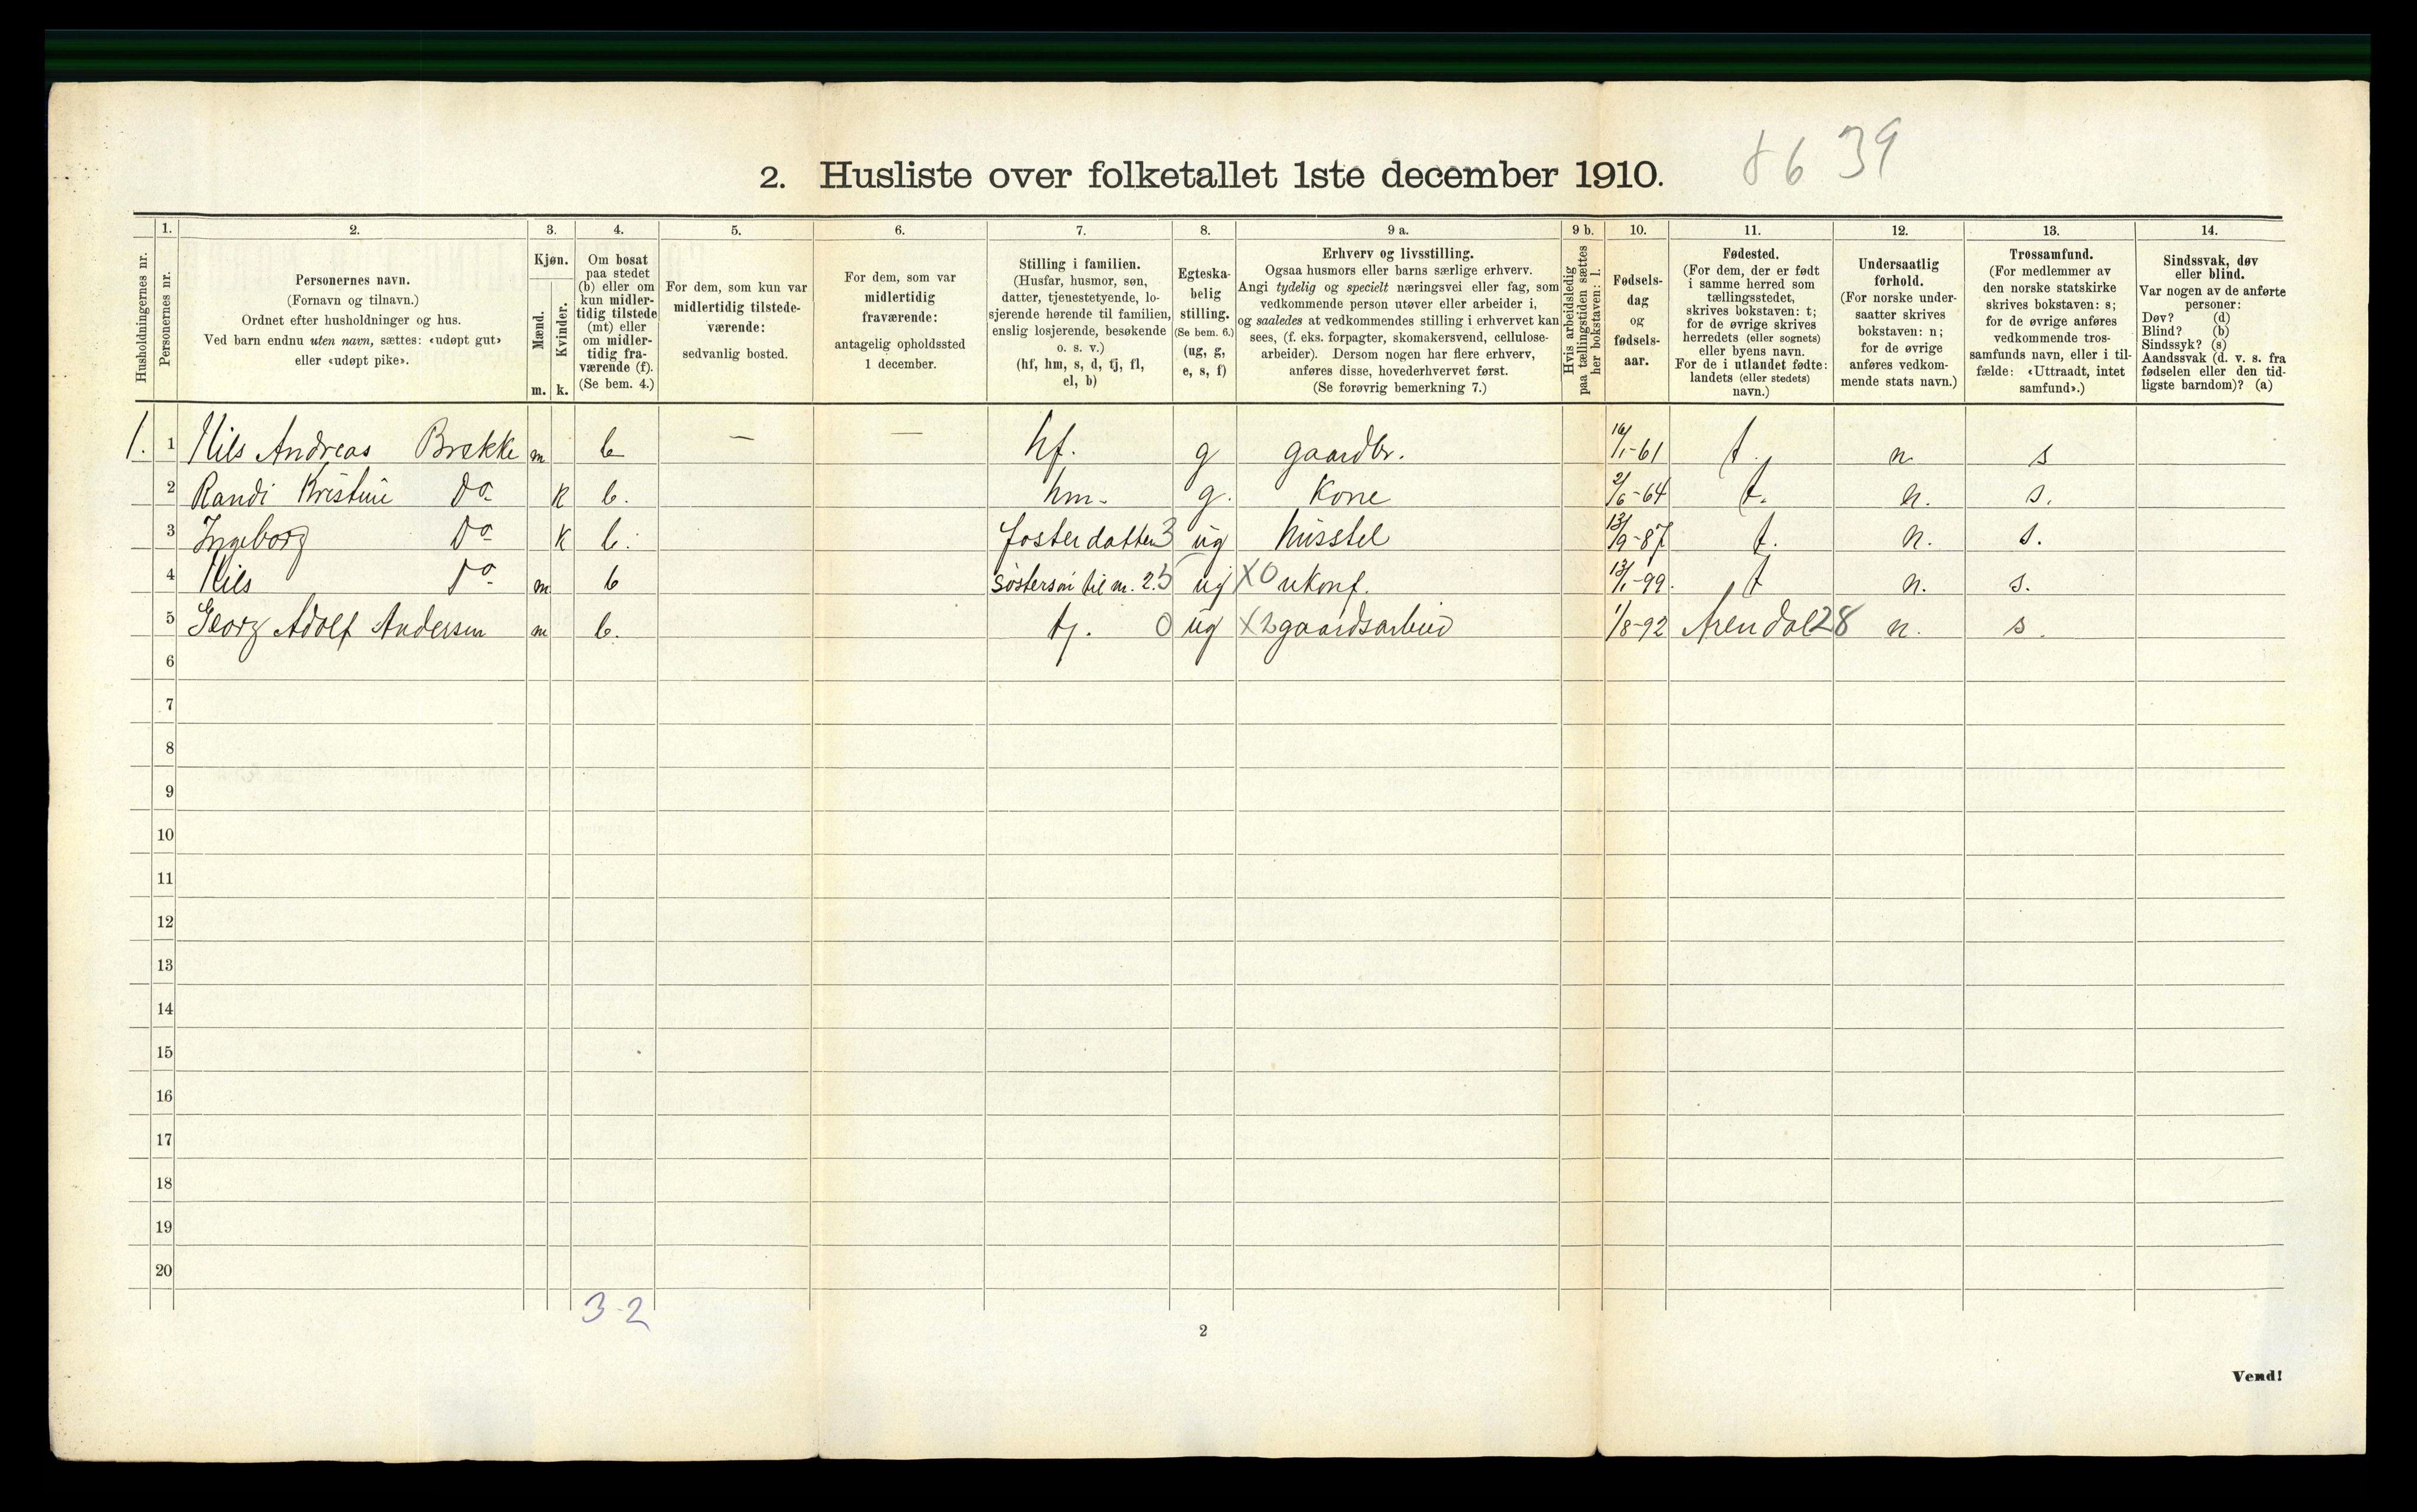 86 39
2. Husliste over folketallet 1ste december 1910.
1. 2. 3. 4. 5. 6. 7. 8. 9 a. 9 b. 10. 11. 12. 13. 14.
Husholdningernes nr.
Personernes nr.
Personernes navn.
(Fornavn og tilnavn.)
Ordnet efter husholdninger og hus.
Ved barn endnu uten navn, sættes: «udøpt gut»
eller «udøpt pike».
Kjøn.
Mænd.
Kvinder.
m. k.
Om bosat
paa stedet
(b) eller om
kun midler-
tidig tilstede
(mt) eller
om midler-
tidig fra-
værende (f).
(Se bem. 4.)
For dem, som kun var
midlertidig tilstede-
værende:
sedvanlig bosted.
For dem, som var
midlertidig
fraværende:
antagelig opholdssted
1 december.
Stilling i familien.
(Husfar, husmor, søn,
datter, tjenestetyende, lo-
sjerende hørende til familien,
enslig losjerende, besøkende
o. s. v.)
(hf, hm, s, d, tj, fl,
el, b)
Egteska-
belig
stilling.
(Se bem. 6.)
(ug, g,
e, s, f)
Erhverv og livsstilling.
Ogsaa husmors eller barns særlige erhverv.
Angi tydelig og specielt næringsvei eller fag, som
vedkommende person utøver eller arbeider i,
og saaledes at vedkommendes stilling i erhvervet kan
sees, (f. eks. forpagter, skomakersvend, cellulose-
arbeider). Dersom nogen har flere erhverv,
anføres disse, hovederhvervet først.
(Se forøvrig bemerkning 7.)
Hvis arbeidsledig
paa tællingstiden sættes
her bokstaven: l.
Fødsels-
dag
og
fødsels-
aar.
Fødested.
(For dem, der er født
i samme herred som
tællingsstedet,
skrives bokstaven: t;
for de øvrige skrives
herredets (eller sognets)
eller byens navn.
For de i utlandet fødte:
landets (eller stedets)
navn.)
Undersaatlig
forhold.
(For norske under-
saatter skrives
bokstaven: n;
for de øvrige
anføres vedkom-
mende stats navn.)
Trossamfund.
(For medlemmer av
den norske statskirke
skrives bokstaven: s;
for de øvrige anføres
vedkommende tros-
samfunds navn, eller i til-
fælde: «Uttraadt, intet
samfund».)
Sindssvak, døv
eller blind.
Var nogen av de anførte
personer:
Døv? (d)
Blind? (b)
Sindssyk? (s)
Aandssvak (d. v. s. fra
fødselen eller den tid-
ligste barndom)? (a)
1. 1 Nils Andreas Brekke m b — — hf. g gaardbr. 16/1-61 t. n. s
2 Randi Kristine Do k b. hm. g. Kone 2/6-64 t. n. s.
3 Ingeborg Do k b. fosterdatter 3 ug husstel 13/9-87 t. n. s.
4 Nils Do m b søstersøn til nr. 2. 5 ug X0 ukonf. 13/1-99. t n. s.
5 Georg Adolf Andersen m b. tj. 0 ug X2 gaardsarbeid 1/8-92 Arendal 28 n. s.
6
7
8
9
10
11
12
13
14
15
16
17
18
19
20
3-2
2
Vend!